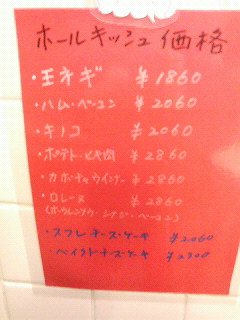 ホールキッシュ価格
・玉ネギ ¥1860
・ハム・ベーコン ¥2060
・キノコ ¥2060
・ポテト・ヒキ肉 ¥2860
・カボチャウインナー ¥2860
・ロレーヌ ¥2860
(ホウレンソウ・シメジ・ベーコン)
・スフレチーズ・ケーキ ¥2060
・ベイクドチーズ・ケーキ